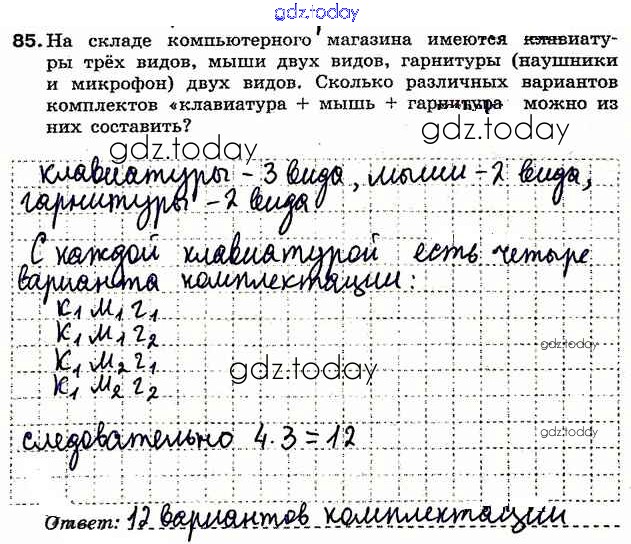 gdz.today
85. На складе компьютерного магазина имеются клавиату-
ры трёх видов, мыши двух видов, гарнитуры (наушники
и микрофон) двух видов. Сколько различных вариантов
комплектов «клавиатура + мышь + гарнитура можно из
них составить?
gdz.today gdz.today
клавиатуры - 3 вида, мыши - 2 вида,
гарнитуры - 2 вида
С каждой клавиатурой есть четыре
варианта комплектации:
К₁ М₁ г₁
К₁ М₁ г₂
gdz.today
К₁ М₂ г₁
gdz.today
К₁ М₂ г₂
следовательно 4·3=12
gdz.today
Ответ: 12 вариантов комплектации